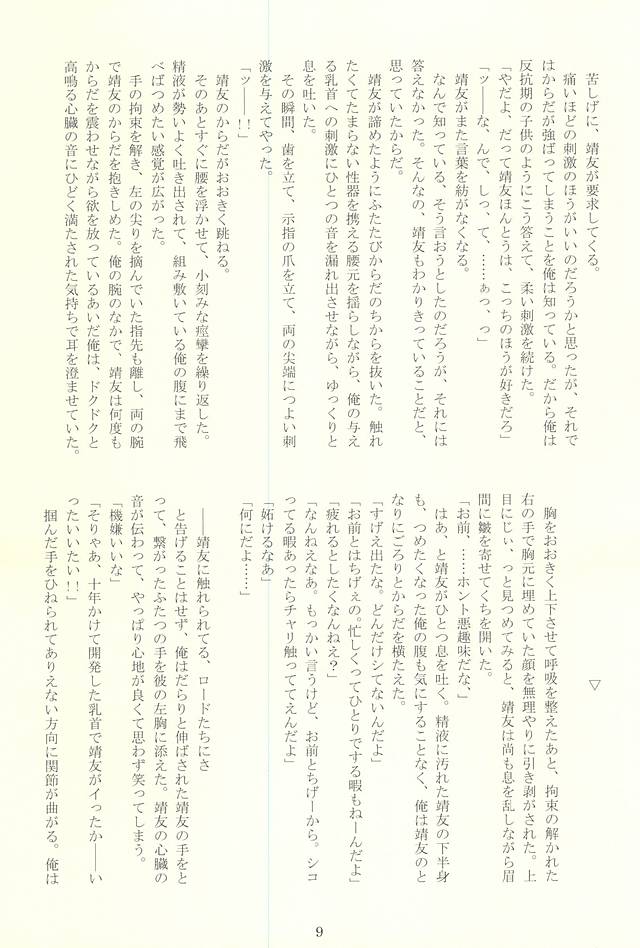 苦しげに、靖友が要求してくる。
痛いほどの刺激のほうがいいのだろうかと思ったが、それで
はからだが強ばってしまうことを俺は知っている。だから俺は
反抗期の子供のようにこう答えて、柔い刺激を続けた。
「やだよ、だって靖友ほんとうは、こっちのほうが好きだろ」
「ッ――な、んで、しっ、て、……ぁっ、っ」
靖友がまた言葉を紡がなくなる。
なんで知っている、そう言おうとしたのだろうが、それには
答えなかった。そんなの、靖友もわかりきっていることだと、
思っていたからだ。
靖友が諦めたようにふたたびからだのちからを抜いた。触れ
たくてたまらない性器を携える腰元を揺らしながら、俺の与え
る乳首への刺激にひとつの音を漏れ出させながら、ゆっくりと
息を吐いた。
その瞬間、歯を立て、示指の爪を立て、両の尖端につよい刺
激を与えてやった。
「ッ――!!」
靖友のからだがおおきく跳ねる。
そのあとすぐに腰を浮かせて、小刻みな痙攣を繰り返した。
精液が勢いよく吐き出されて、組み敷いている俺の腹にまで飛
べばつめたい感覚が広がった。
手の拘束を解き、左の尖りを摘んでいた指先も離し、両の腕
で靖友のからだを抱きしめた。俺の腕のなかで、靖友は何度も
からだを震わせながら欲を放っているあいだ俺は、ドクドクと
高鳴る心臓の音にひどく満たされた気持ちで耳を澄ませていた。
▽
胸をおおきく上下させて呼吸を整えたあと、拘束の解かれた
右の手で胸元に埋めていた顔を無理やりに引き剥がされた。上
目にじぃ、っと見つめてみると、靖友は尚も息を乱しながら眉
間に皺を寄せてくちを開いた。
「お前、……ホント悪趣味だな、」
はあ、と靖友がひとつ息を吐く。精液に汚れた靖友の下半身
も、つめたくなった俺の腹も気にすることなく、俺は靖友のと
なりにごろりとからだを横たえた。
「すげえ出たな。どんだけシてないんだよ」
「お前とはちげぇの。忙しくってひとりでする暇もねーんだよ」
「疲れるとしたくなんねえ？」
「なんねえなあ。もっかい言うけど、お前とちげーから。シコ
ってる暇あったらチャリ触っててえんだよ」
「妬けるなあ」
「何にだよ……」
――靖友に触れられてる、ロードたちにさ
と告げることはせず、俺はだらりと伸ばされた靖友の手をと
って、繋がったふたつの手を彼の左胸に添えた。靖友の心臓の
音が伝わって、やっぱり心地が良くて思わず笑ってしまう。
「機嫌いいな」
「そりゃあ、十年かけて開発した乳首で靖友がイったか――い
ったいいたい!!」
掴んだ手をひねられてありえない方向に関節が曲がる。俺は
9